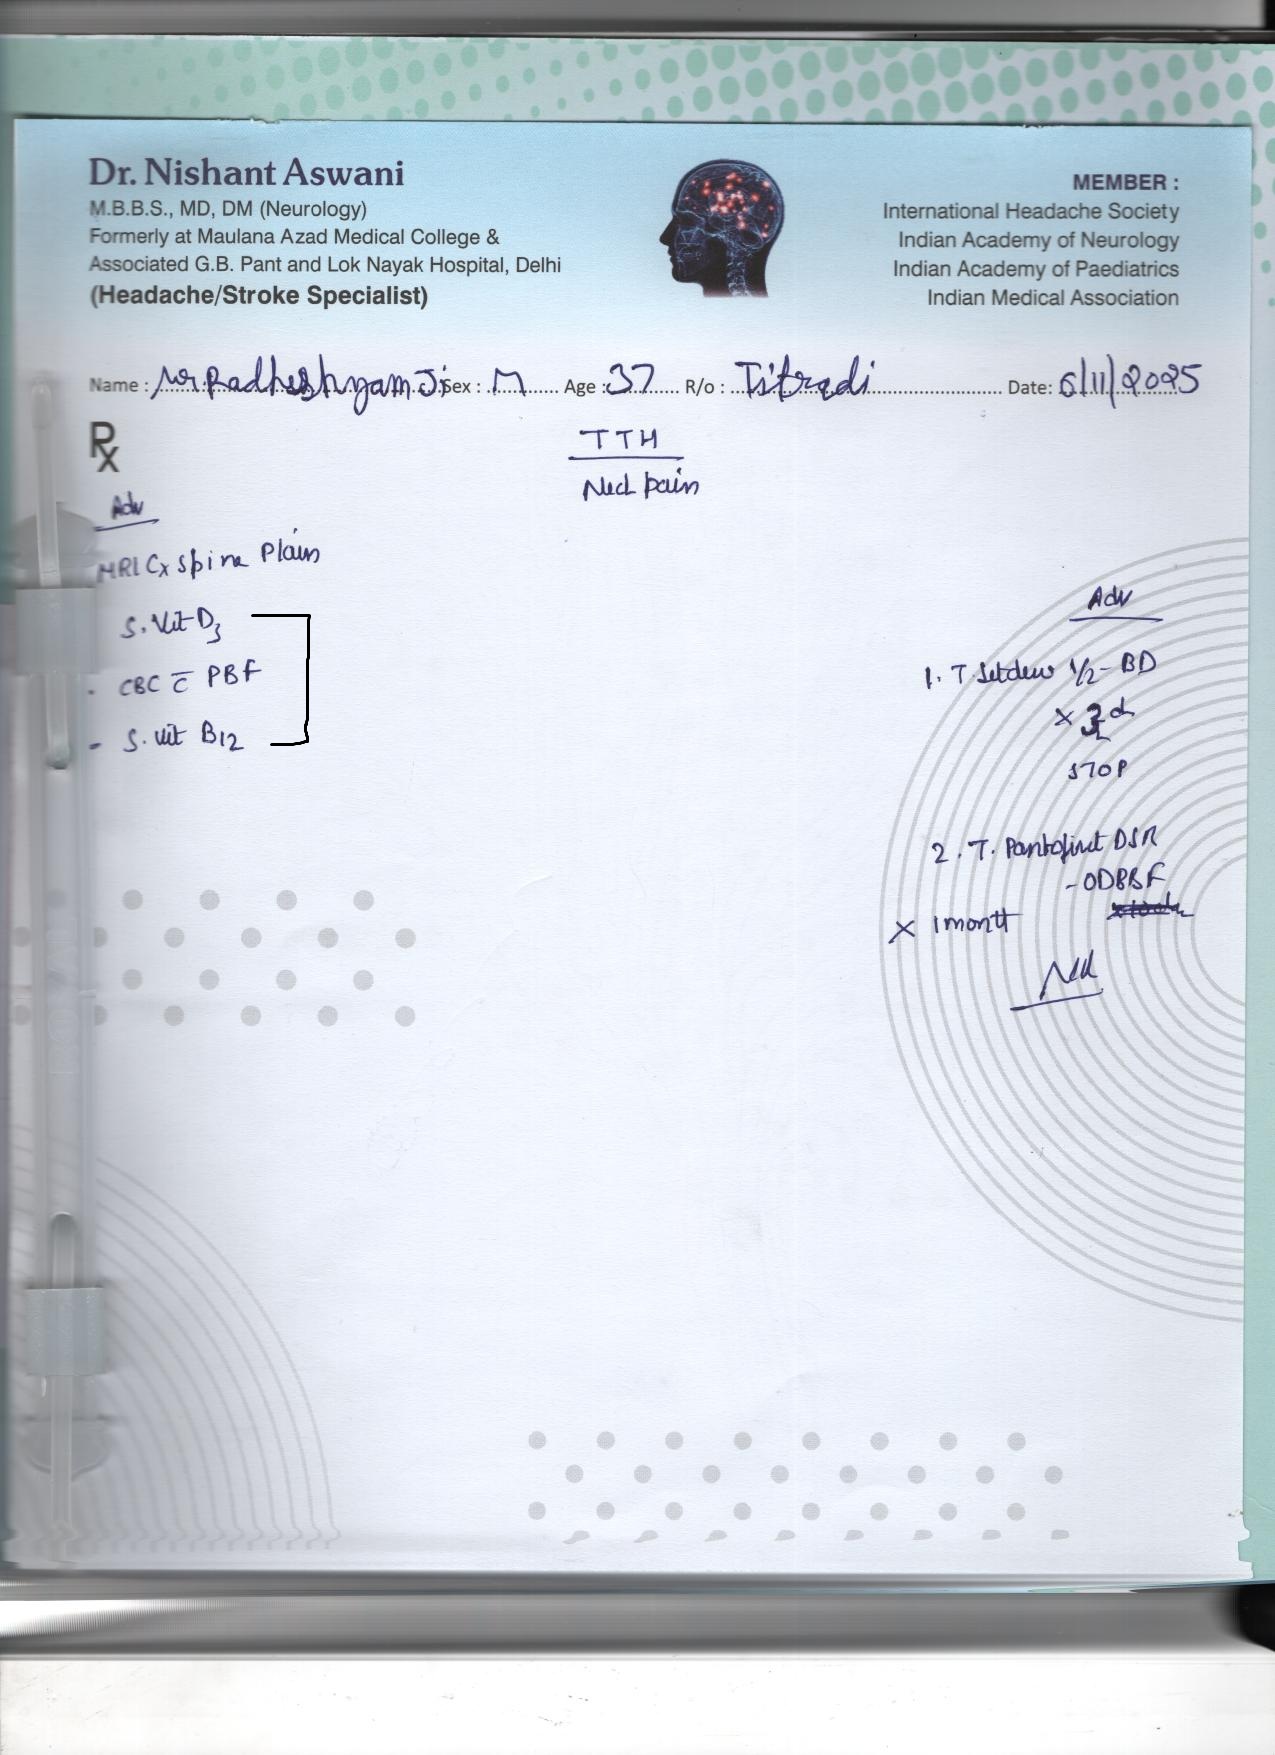 Dr. Nishant Aswani
M.B.B.S., MD, DM (Neurology)
Formerly at Maulana Azad Medical College &
Associated G.B. Pant and Lok Nayak Hospital, Delhi
(Headache/Stroke Specialist)
MEMBER :
International Headache Society
Indian Academy of Neurology
Indian Academy of Paediatrics
Indian Medical Association
Name : Mr Radheshyam Ji Sex : M Age : 37 R/o : Titradi Date: 6/11/2025
Rx
TTH
Neck pain
Adv
MRI Cx Spine Plain
S. Vit D3
- CBC c̅ PBF
- S. Vit B12
Adv
1. T. 1/2 - BD
x 3d
STOP
2. T. DSR
- ODBBF
x 1 month